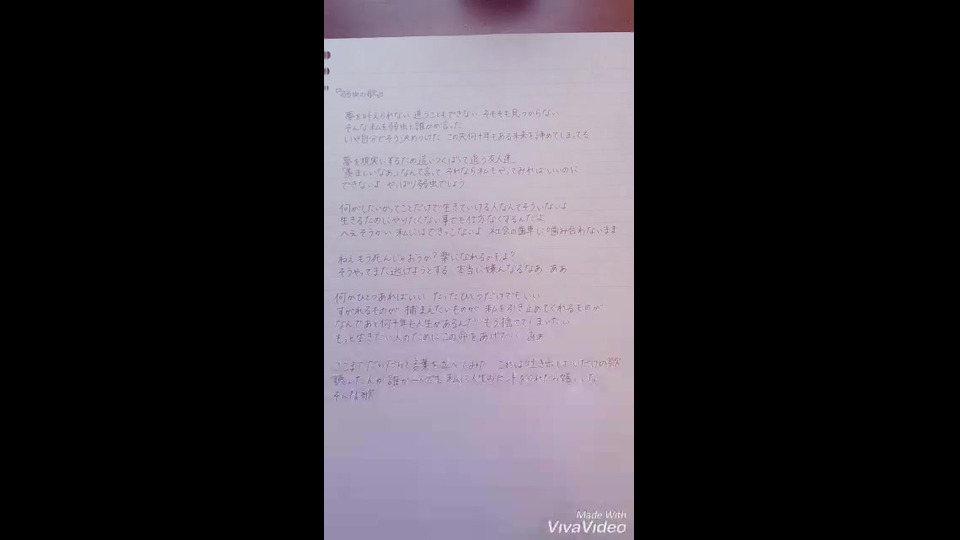 『弱虫の歌』
夢を叶えられない 追うこともできない そもそも見つからない
そんな私を弱虫と誰かが言った
いや自分でそう決めつけた この先何十年もある未来を諦めてしまってる
夢を現実にするため追いつくばって追う友人達
「羨ましいなあ」なんて言って それなら私もやってみればいいのに
できないよ やっぱり弱虫でしょう
何がしたいかってことだけで生きていける人なんてそういないよ
生きるためにやりたくない事でも仕方なくするんだよ
へえそうかい 私にはできっこないよ 社会の歯車に噛み合わないまま
ねえもう死んじゃおうか? 楽になれるかもよ?
そうやってまた逃げようとする 本当に嫌んなるなあ ああ
何かひとつあればいい たったひとつだけでもいい
すがれるものが 捕まえたいものが 私を引き止めてくれるものが
なんであと何十年も人生があるんだ もう捨ててしまいたい
もっと生きたい人のためにこの命をあげたい ああ
ここまでだらだらと言葉を並べてみた これは吐き出したいだけの歌
聴いた人が 誰か一人でも 私に人生のヒントをくれたら嬉しいな
そんな歌
Made With
VivaVideo